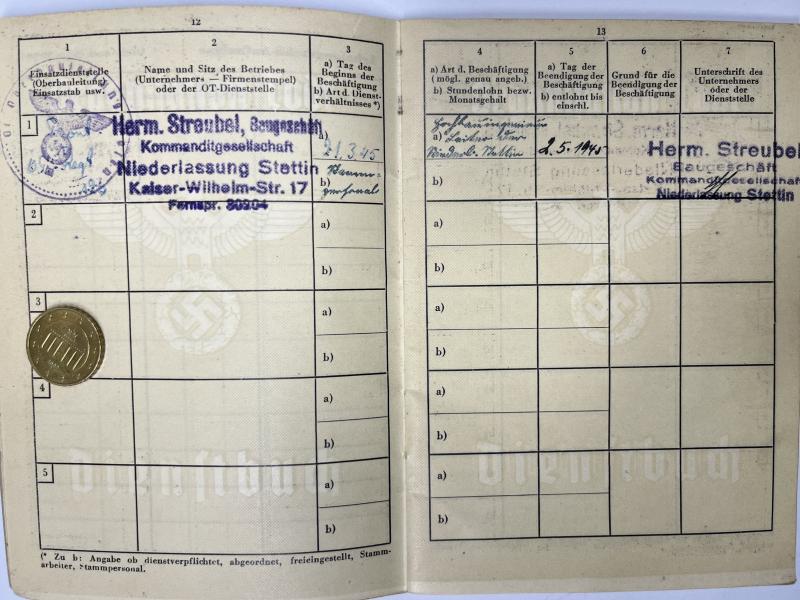 12
1
Einsatzdienststelle
(Oberbauleitung)
Einsatzstab usw.
2
Name und Sitz des Betriebes
(Unternehmers — Firmenstempel)
oder der OT-Dienststelle
3
a) Tag des
Beginns der
Beschäftigung
b) Art d. Dienst-
verhältnisses *)
1
Herm. Streubel, Baugeschäft
Kommanditgesellschaft
Niederlassung Stettin
Kaiser-Wilhelm-Str. 17
Fernspr. 30904
a)
21.3.45
b) Stamm-
personal
2
a)
b)
3
a)
b)
4
a)
b)
5
a)
b)
Dienstbuch
(* Zu b: Angabe ob dienstverpflichtet, abgeordnet, freieingestellt, Stamm-
arbeiter, Stammpersonal.
13
4
a) Art d. Beschäftigung
(mögl. genau angeb.)
b) Stundenlohn bezw.
Monatsgehalt
5
a) Tag der
Beendigung der
Beschäftigung
b) entlohnt bis
einschl.
6
Grund für die
Beendigung der
Beschäftigung
7
Unterschrift des
Unternehmers
oder der
Dienststelle
Hochbauingenieur
a) Leiter der
Niederl. Stettin
2.5.1945
b)
Herm. Streubel
Baugeschäft
Kommanditgesellschaft
Niederlassung Stettin
a)
b)
a)
b)
a)
b)
a)
b)
Dienstbuch